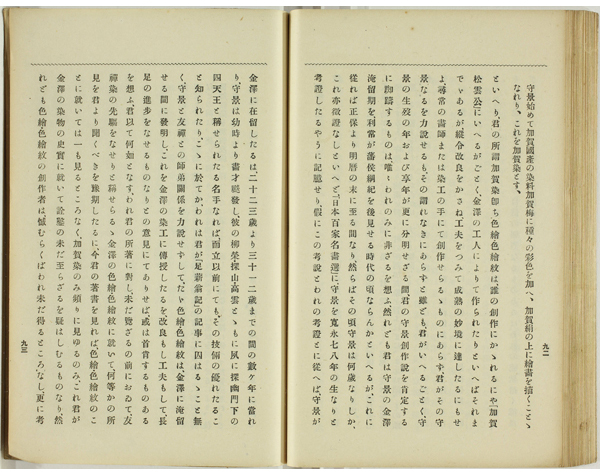 守景始めて加賀國産の染料加賀梅に種々の彩色を加へ、加賀絹の上に繪書を描くことゝ
なれり、これを加賀染と言す。
といへり、君の所謂加賀染卽ち色繪色繪紋は、誰の創作にかゝれるにや『加賀
松雲公にいへるがごとく、金澤の工人によりて作られたりといへばそれま
でゞあるが、縱令改良をかさね工夫をつみて成熟の妙境に達したるにもせ
よ、尋常の畵師または染工の手にて創作せらるゝものにあらず、君がその守
景なるを力說せるも、その謂れなきにあらずと雖ども、君がいへるごとく、守
景の生歿の年および享年が更に分明せざる間、君の守景創作說を肯定する
に躊躇するものは、唯々われのみに非ざるを想ふ、然れども君は守景の金澤
淹留期を利常が藩侯綱紀を後見せる時代の頃ならんかといへるが、これに
從れば正保より明曆の末に至る間なり、然らばその頃守景は何歲なりしか、
これ亦徵證なしといへど、『日本百家名書選』に守景を寬永七八年の生なりと
考證したるやうに記憶せり、假にこの考說とわれの考證とに從へば、守景が
九二
金澤に在留したるは二十二三歲より三十一二歲までの間の數ケ年に當れ
り、守景は幼時より畵才穎發し、彼の柳榮、探山、高雲とゝもに夙に探幽門下の
四天王と稱せられたる名手なれば而立以前にても、その技倆の優れたるこ
と知られたり、こゝに於てか、われは君が『足薪翁記』の記事に囚はるゝこと無
く、守景と友禪との師弟關係を力說せずして、たゞ色繪色繪紋は、金澤に淹留
せる間に發明し、これを金澤の染工に傳授したるを、改良もし工夫もして、長
足の進步をなせるものなりとの意見にてありせば、或は首肯するものある
を想ふ、君以て何如となす、われ君の所著に對し、未だ覽ざるの前においゐて、友
禪染の先驅をなせりと稱せらるゝ金澤の色繪色繪紋に就いて、何等かの所
見を君より聞くべきを豫期したるに、今君の著書を見れば、色繪色繪紋のこ
とに就いては一も見るところなく、加賀染のみ頻りに見ゆるのみ、これ君が
金澤の染物の史實に就いて詮鑿の未だ至らざるを疑はしむるものなり、然
れども色繪色繪紋の創作者は憾むらくはわれ未だ得るところなし、更に考
九三